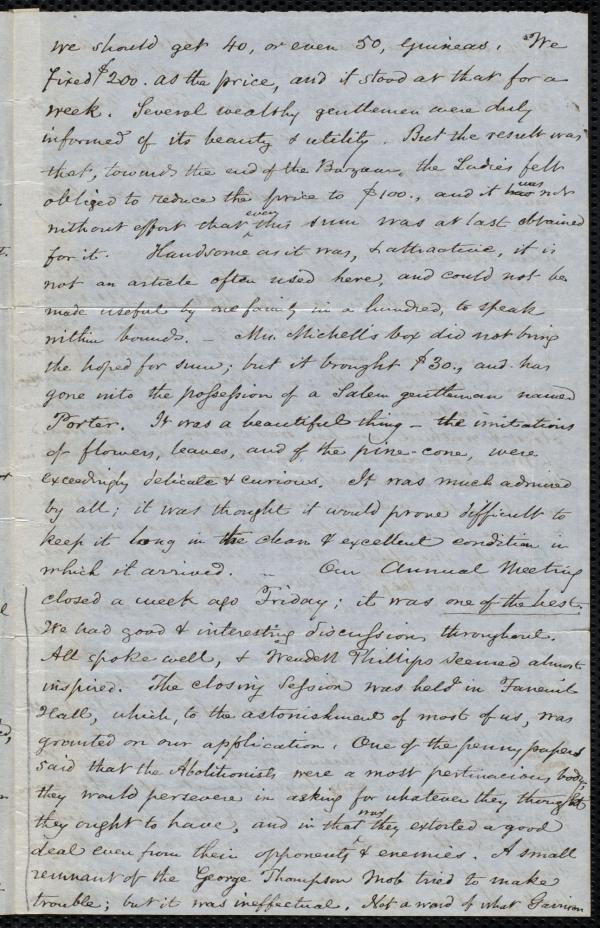 we should get 40, or even 50, guineas. We
fixed $200. as the price, and it stood at that for a
week. Several wealthy gentlemen were duly
informed of its beauty & utility. But the result was
that, towards the end of the Bazaar, the Ladies felt
obliged to reduce the price to $100., and it was not
without effort that even this sum was at last obtained
for it. Handsome as it was, & attractive, it is
not an article often used here, and could not be
made useful by one family in a hundred, to speak
within bounds. – Mrs. Michell's box did not bring
the hoped for sum; but it brought $30., and has
gone into the possession of a Salem gentleman named
Porter. It was a beautiful thing – the imitations
of flowers, leaves, and of the pine-cone, were
exceedingly delicate & curious. It was much admired
by all; it was thought it would prove difficult to
keep it long in the clean & excellent condition in
which it arrived. – Our Annual Meeting
closed a week ago Friday; it was one of the best.
We had good & interesting discussions throughout.
All spoke well, & Wendell Phillips seemed almost
inspired. The closing Session was held in Faneuil
Hall, which, to the astonishment of most of us, was
granted on our application. One of the penny papers
said that the Abolitionists were a most pertinacious body;
they would persevere in asking for whatever they thought
they ought to have, and in that way they extorted a good
deal even from their opponents & enemies. A small
remnant of the George Thompson mob tried to make
trouble; but it was ineffectual. Not a word of what Garrison